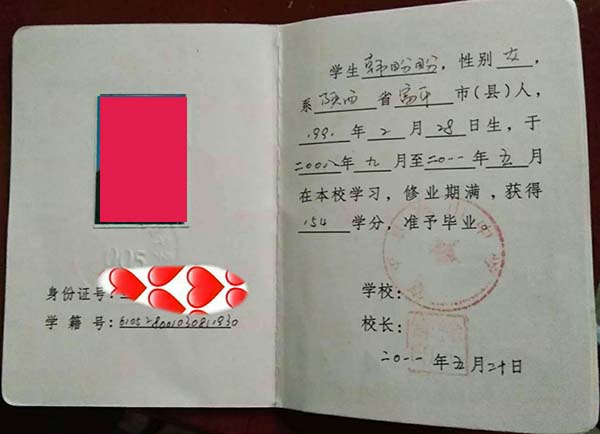 身份证号:
学 籍 号:610528001030811930
学生韩盼盼,性别 女,
系 陕西 省 富平 市(县)人,
1991 年 2 月 28 日生,于
二00八年 九 月至二0一一年 五 月
在本校学习,修业期满,获得
154 学分,准予毕业。
学校:
校长:
二0一一年五月二十日